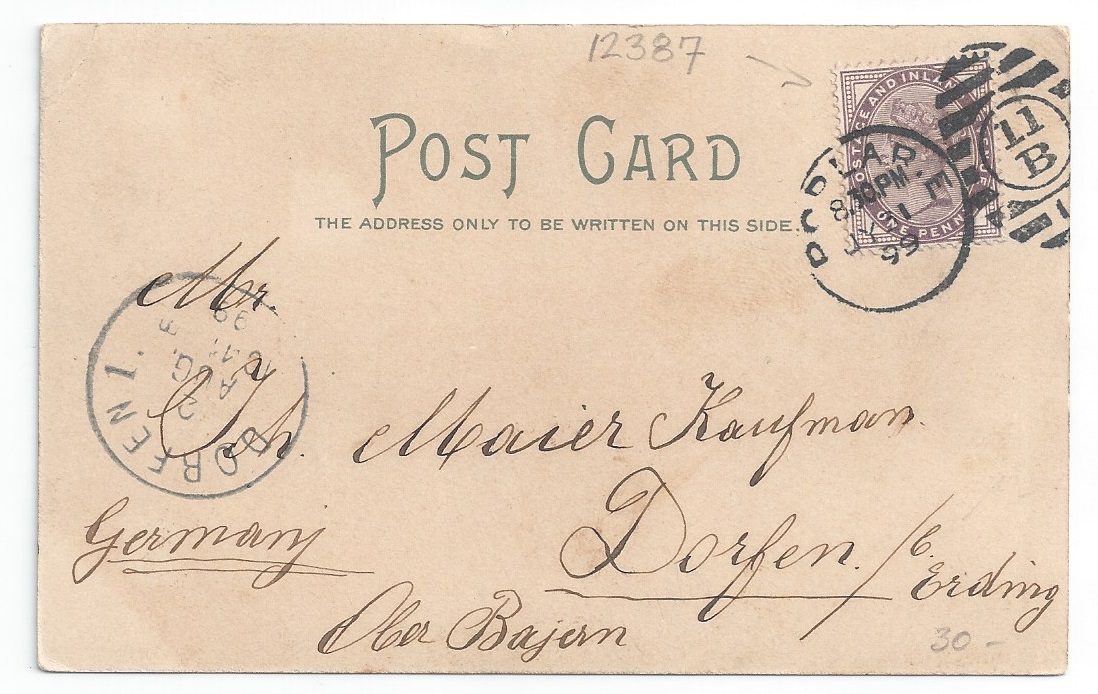 12387
POST CARD
THE ADDRESS ONLY TO BE WRITTEN ON THIS SIDE.
POSTAGE AND INLAND REVENUE
ONE PENNY
POPLAR. E
8.30PM
JY 31
99
L1
B
DORFEN 1.
2 AUG.
99
Mr.
Joh. Maier Kaufman.
Dorfen. /b. Erding
Germany
Ober Bajern
30-